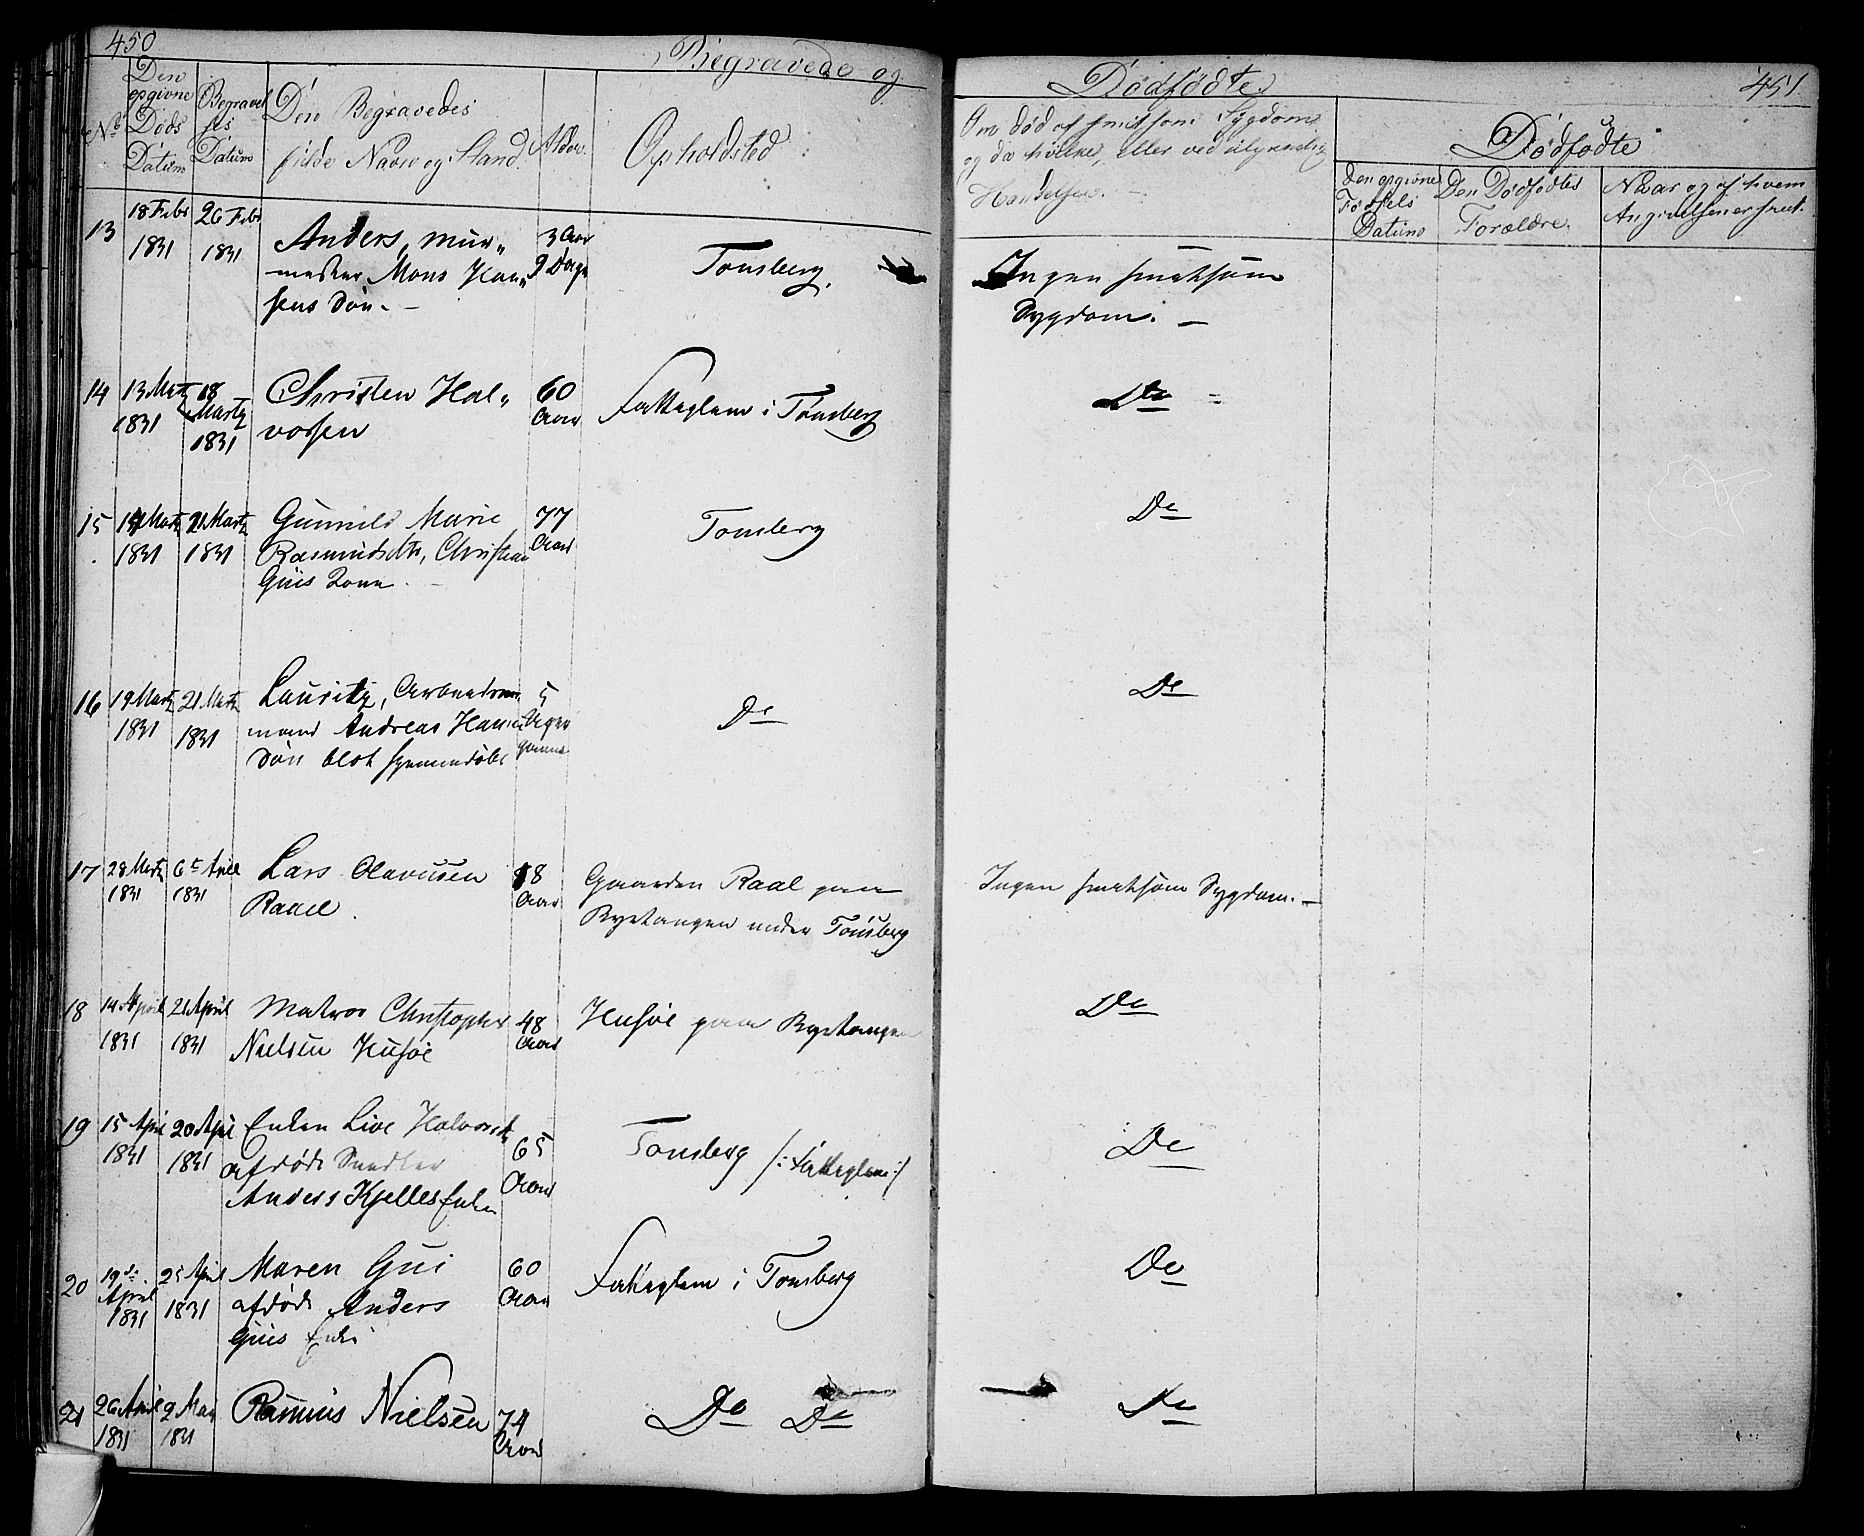 450
Begravede og
No
Den opgivne Døds Datum
Begravelses Datum
Den Begravedes
fulde Navn og Stand
Alder.
Opholdsted
Dødfødte.
451
Om død af smitsom Sygdom
og da hvilken, eller ved ulykkelig
Hændelse.
Dødfødte
den opgivne Fødsels Datum
Den Dødfødtes Forældre.
Naar og af hvem Angivelsen er skeet.
13 18 Febr 1831 26 Febr 1831
Anders, mur„
mester Mons Han„
sens Søn.
3 Aar 9 Dage
Tønsberg.
Ingen smitsom
Sygdom.
14 13 Martz 1831 18 Martz 1831
Christen Hal„
vorsen
60 Aar
Fattiglem i Tønsberg
Do
15 14 Martz 1831 21 Martz 1831
Gunnild Marie
Rasmusdatr, Christian
Guis Kone.
77 Aar
Tønsberg
Do
16 19 Martz 1831 21 Martz 1831
Lauritz, Arbeids
mand Andreas Hansens
Søn blot hjemmedøbt
5 Uger gammel
Do
Do
17 28 Martz 1831 6t April 1831
Lars Olavusen
Raael.
88 Aar
Gaarden Raal paa
Byetangen under Tønsberg
Ingen smitsom Sygdom.
18 14 April 1831 21 April 1831
Matros Christopher
Nielsen Husøe
48 Aar
Husøe paa Byetangen
Do
19 15 April 1831 20 April 1831
Enken Live Halvorsdtr
afdøde Snedker
Anders Kjelles Enke
65 Aar
Tønsberg /: Fattiglem :/
Do
20 19de April 1831 25 April 1831
Maren Gui
afdøde Anders
Guis Enke
60 Aar
Fattiglem i Tønsberg
Do
21 26 April 1831 2 Mai 1831
Rasmus Nielsen
74 Aar
Do Do
Do